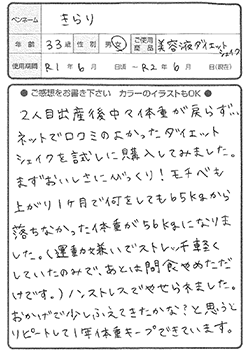 ペンネーム きらり
年齢 33歳 性別 男・女 ご使用商品 美容液ダイエットシェイク
使用期間 R1年6月 日頃 〜 R2年6月 日(現在)
● ご感想をお書き下さい カラーのイラストもOK ●
2人目出産後中々体重が戻らず…
ネットで口コミのよかったダイエット
シェイクを試しに購入してみました。
まずおいしさにびっくり! モチベも
上がり1ヶ月で何をしても65kgから
落ちなかった体重が56kgになりま
した。(運動嫌いでストレッチ軽く
していたのみで、あとは間食やめただ
けです。)ノンストレスでやせられました。
おかげで少しふえてきたかな?と思うと
リピートして1年体重キープできています。